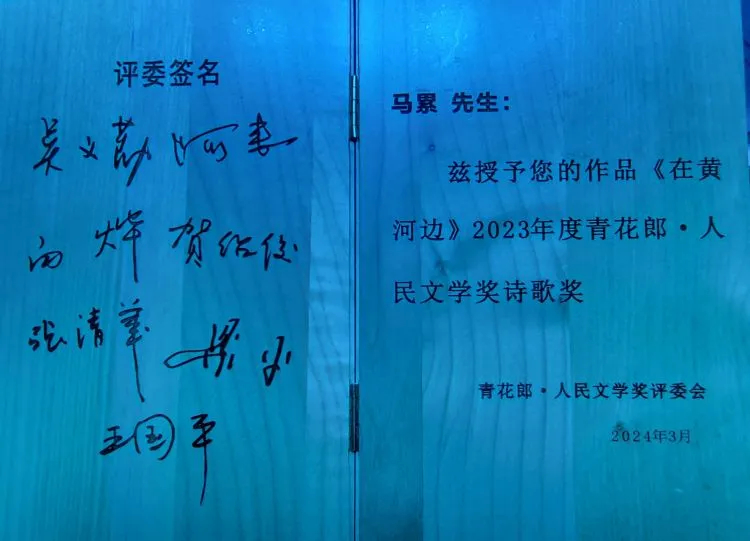 评委签名
吴义勤 何向阳
白烨 贺绍俊
张清华 梁鸿
王国平
马累 先生：
兹授予您的作品《在黄
河边》2023年度青花郎·人
民文学奖诗歌奖
青花郎·人民文学奖评委会
2024年3月